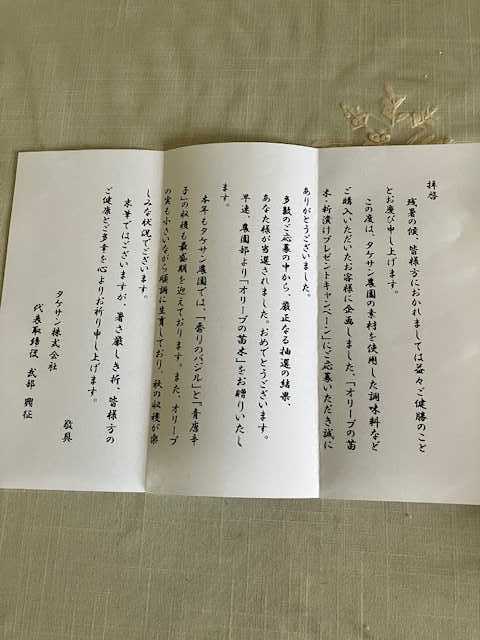 拝啓
残暑の候、皆様方におかれましては益々ご健勝のこと
とお慶び申し上げます。
この度は、タケサン農園の素材を使用した調味料など
ご購入いただいたお客様に企画しました、「オリーブの苗
木・新漬けプレゼントキャンペーン」にご応募いただき誠に
ありがとうございました。
多数のご応募の中から、厳正なる抽選の結果、
あなた様が当選されました。おめでとうございます。
早速、農園部より「オリーブの苗木」をお贈りいたし
ます。
本年もタケサン農園では、「香りのバジル」と「青唐辛
子」の収穫も最盛期を迎えております。また、オリーブ
の実も小さいながら順調に生育しており、秋の収穫が楽
しみな状況でございます。
末筆ではございますが、暑さ厳しき折、皆様方の
ご健康とご多幸を心よりお祈り申し上げます。
敬具
タケサン株式会社
代表取締役 武部 興征